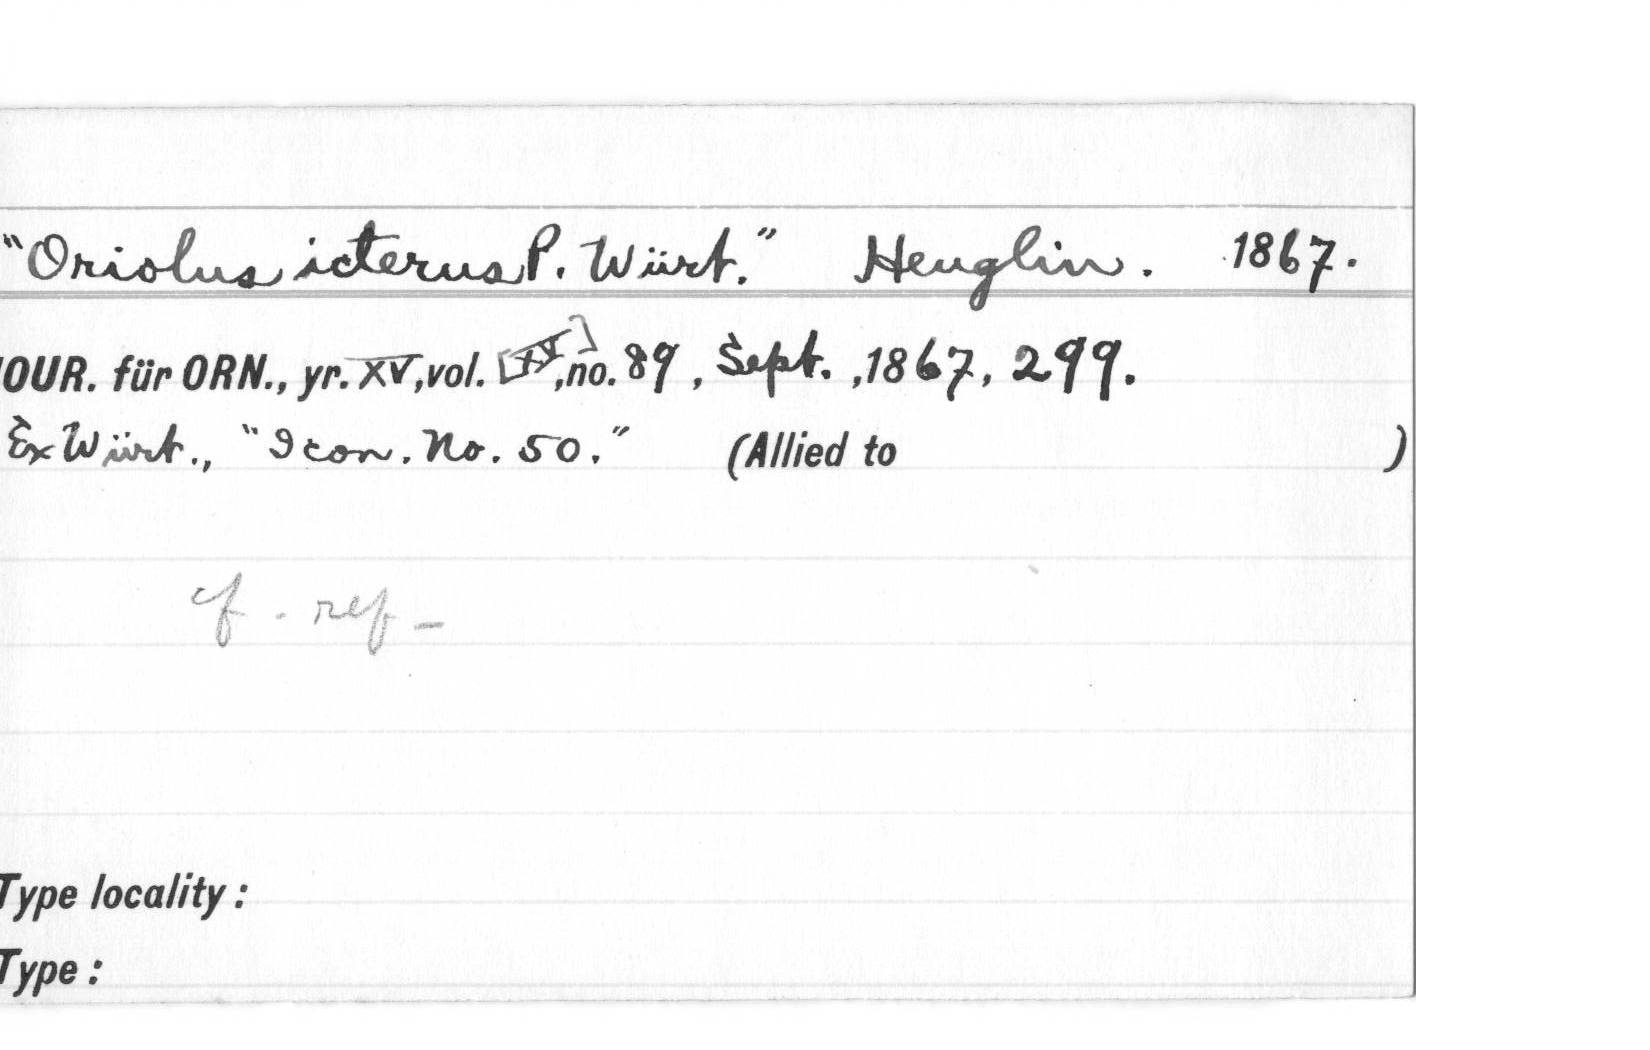 "Oriolus icterus P. Würt." Heuglin. 1867.
JOUR. für ORN., yr. XV, vol. [XV], no. 89, Sept., 1867, 299.
Ex Würt., "Icon. No. 50." (Allied to )
cf. ref-
Type locality:
Type: